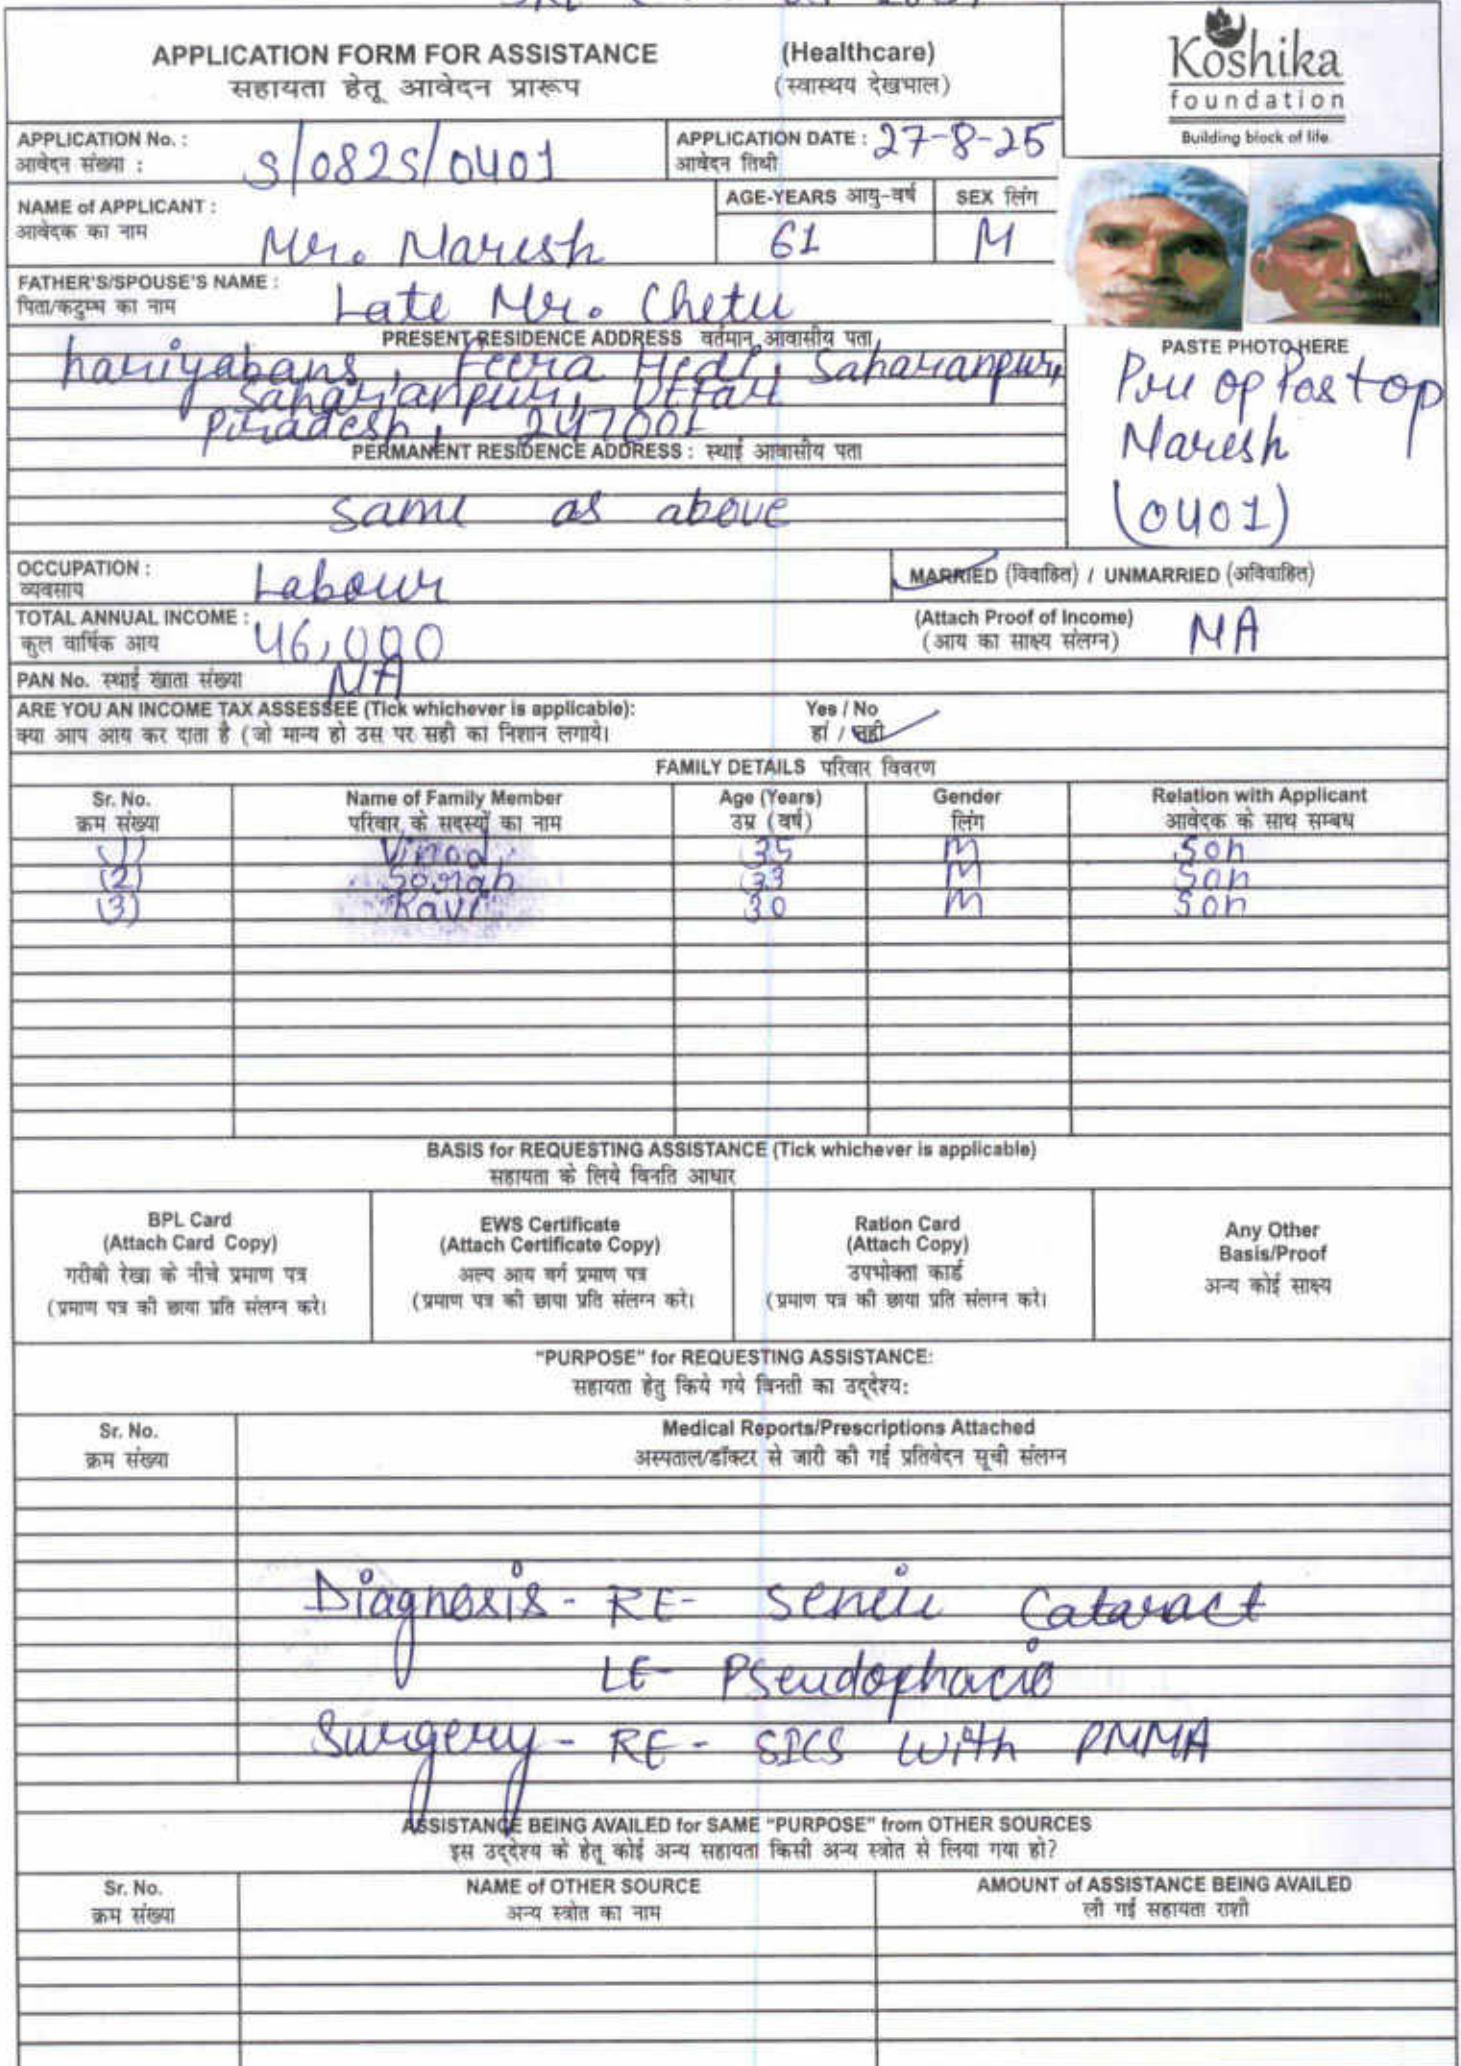 APPLICATION FORM FOR ASSISTANCE (Healthcare)
सहायता हेतू आवेदन प्रारूप (स्वास्थय देखभाल)
Koshika
foundation
Building block of life.
APPLICATION No. : S/0825/0401
आवेदन संख्या :
APPLICATION DATE : 27-8-25
आवेदन तिथी
NAME of APPLICANT : Mr. Naresh
आवेदक का नाम
AGE-YEARS आयु-वर्ष 61
SEX लिंग M
FATHER'S/SPOUSE'S NAME : Late Mr. Chetu
पिता/कटुम्ब का नाम
PRESENT RESIDENCE ADDRESS वर्तमान आवासीय पता
hariyabans, Saharanpur,
Saharanpur, Uttar
Pradesh, 247001
PERMANENT RESIDENCE ADDRESS : स्थाई आवासीय पता
same as above
PASTE PHOTO HERE
Pre op Post op
Naresh
(0401)
OCCUPATION : Labour
व्यवसाय
MARRIED (विवाहित) / UNMARRIED (अविवाहित)
TOTAL ANNUAL INCOME : 46,000
कुल वार्षिक आय
(Attach Proof of Income) NA
(आय का साक्ष्य संलग्न)
PAN No. स्थाई खाता संख्या NA
ARE YOU AN INCOME TAX ASSESSEE (Tick whichever is applicable): Yes / No
क्या आप आय कर दाता है (जो मान्य हो उस पर सही का निशान लगाये। हां / नहीं
FAMILY DETAILS परिवार विवरण
Sr. No. Name of Family Member Age (Years) Gender Relation with Applicant
क्रम संख्या परिवार के सदस्यों का नाम उम्र (वर्ष) लिंग आवेदक के साथ सम्बध
(1) Vinod 35 M Son
(2) 33 M Son
(3) Ravi 30 M Son
BASIS for REQUESTING ASSISTANCE (Tick whichever is applicable)
सहायता के लिये विनति आधार
BPL Card
(Attach Card Copy)
गरीबी रेखा के नीचे प्रमाण पत्र
(प्रमाण पत्र की छाया प्रति संलग्न करे।
EWS Certificate
(Attach Certificate Copy)
अल्प आय वर्ग प्रमाण पत्र
(प्रमाण पत्र की छाया प्रति संलग्न करे।
Ration Card
(Attach Copy)
उपभोक्ता कार्ड
(प्रमाण पत्र की छाया प्रति संलग्न करे।
Any Other
Basis/Proof
अन्य कोई साक्ष्य
"PURPOSE" for REQUESTING ASSISTANCE:
सहायता हेतु किये गये विनती का उद्देश्य:
Sr. No. Medical Reports/Prescriptions Attached
क्रम संख्या अस्पताल/डॉक्टर से जारी की गई प्रतिवेदन सूची संलग्न
Diagnosis - RE- Cataract
LE- Pseudophacia
Surgery - RE - SICS with PMMA
ASSISTANCE BEING AVAILED for SAME "PURPOSE" from OTHER SOURCES
इस उद्देश्य के हेतू कोई अन्य सहायता किसी अन्य स्त्रोत से लिया गया हो?
Sr. No. NAME of OTHER SOURCE AMOUNT of ASSISTANCE BEING AVAILED
क्रम संख्या अन्य स्त्रोत का नाम ली गई सहायता राशी